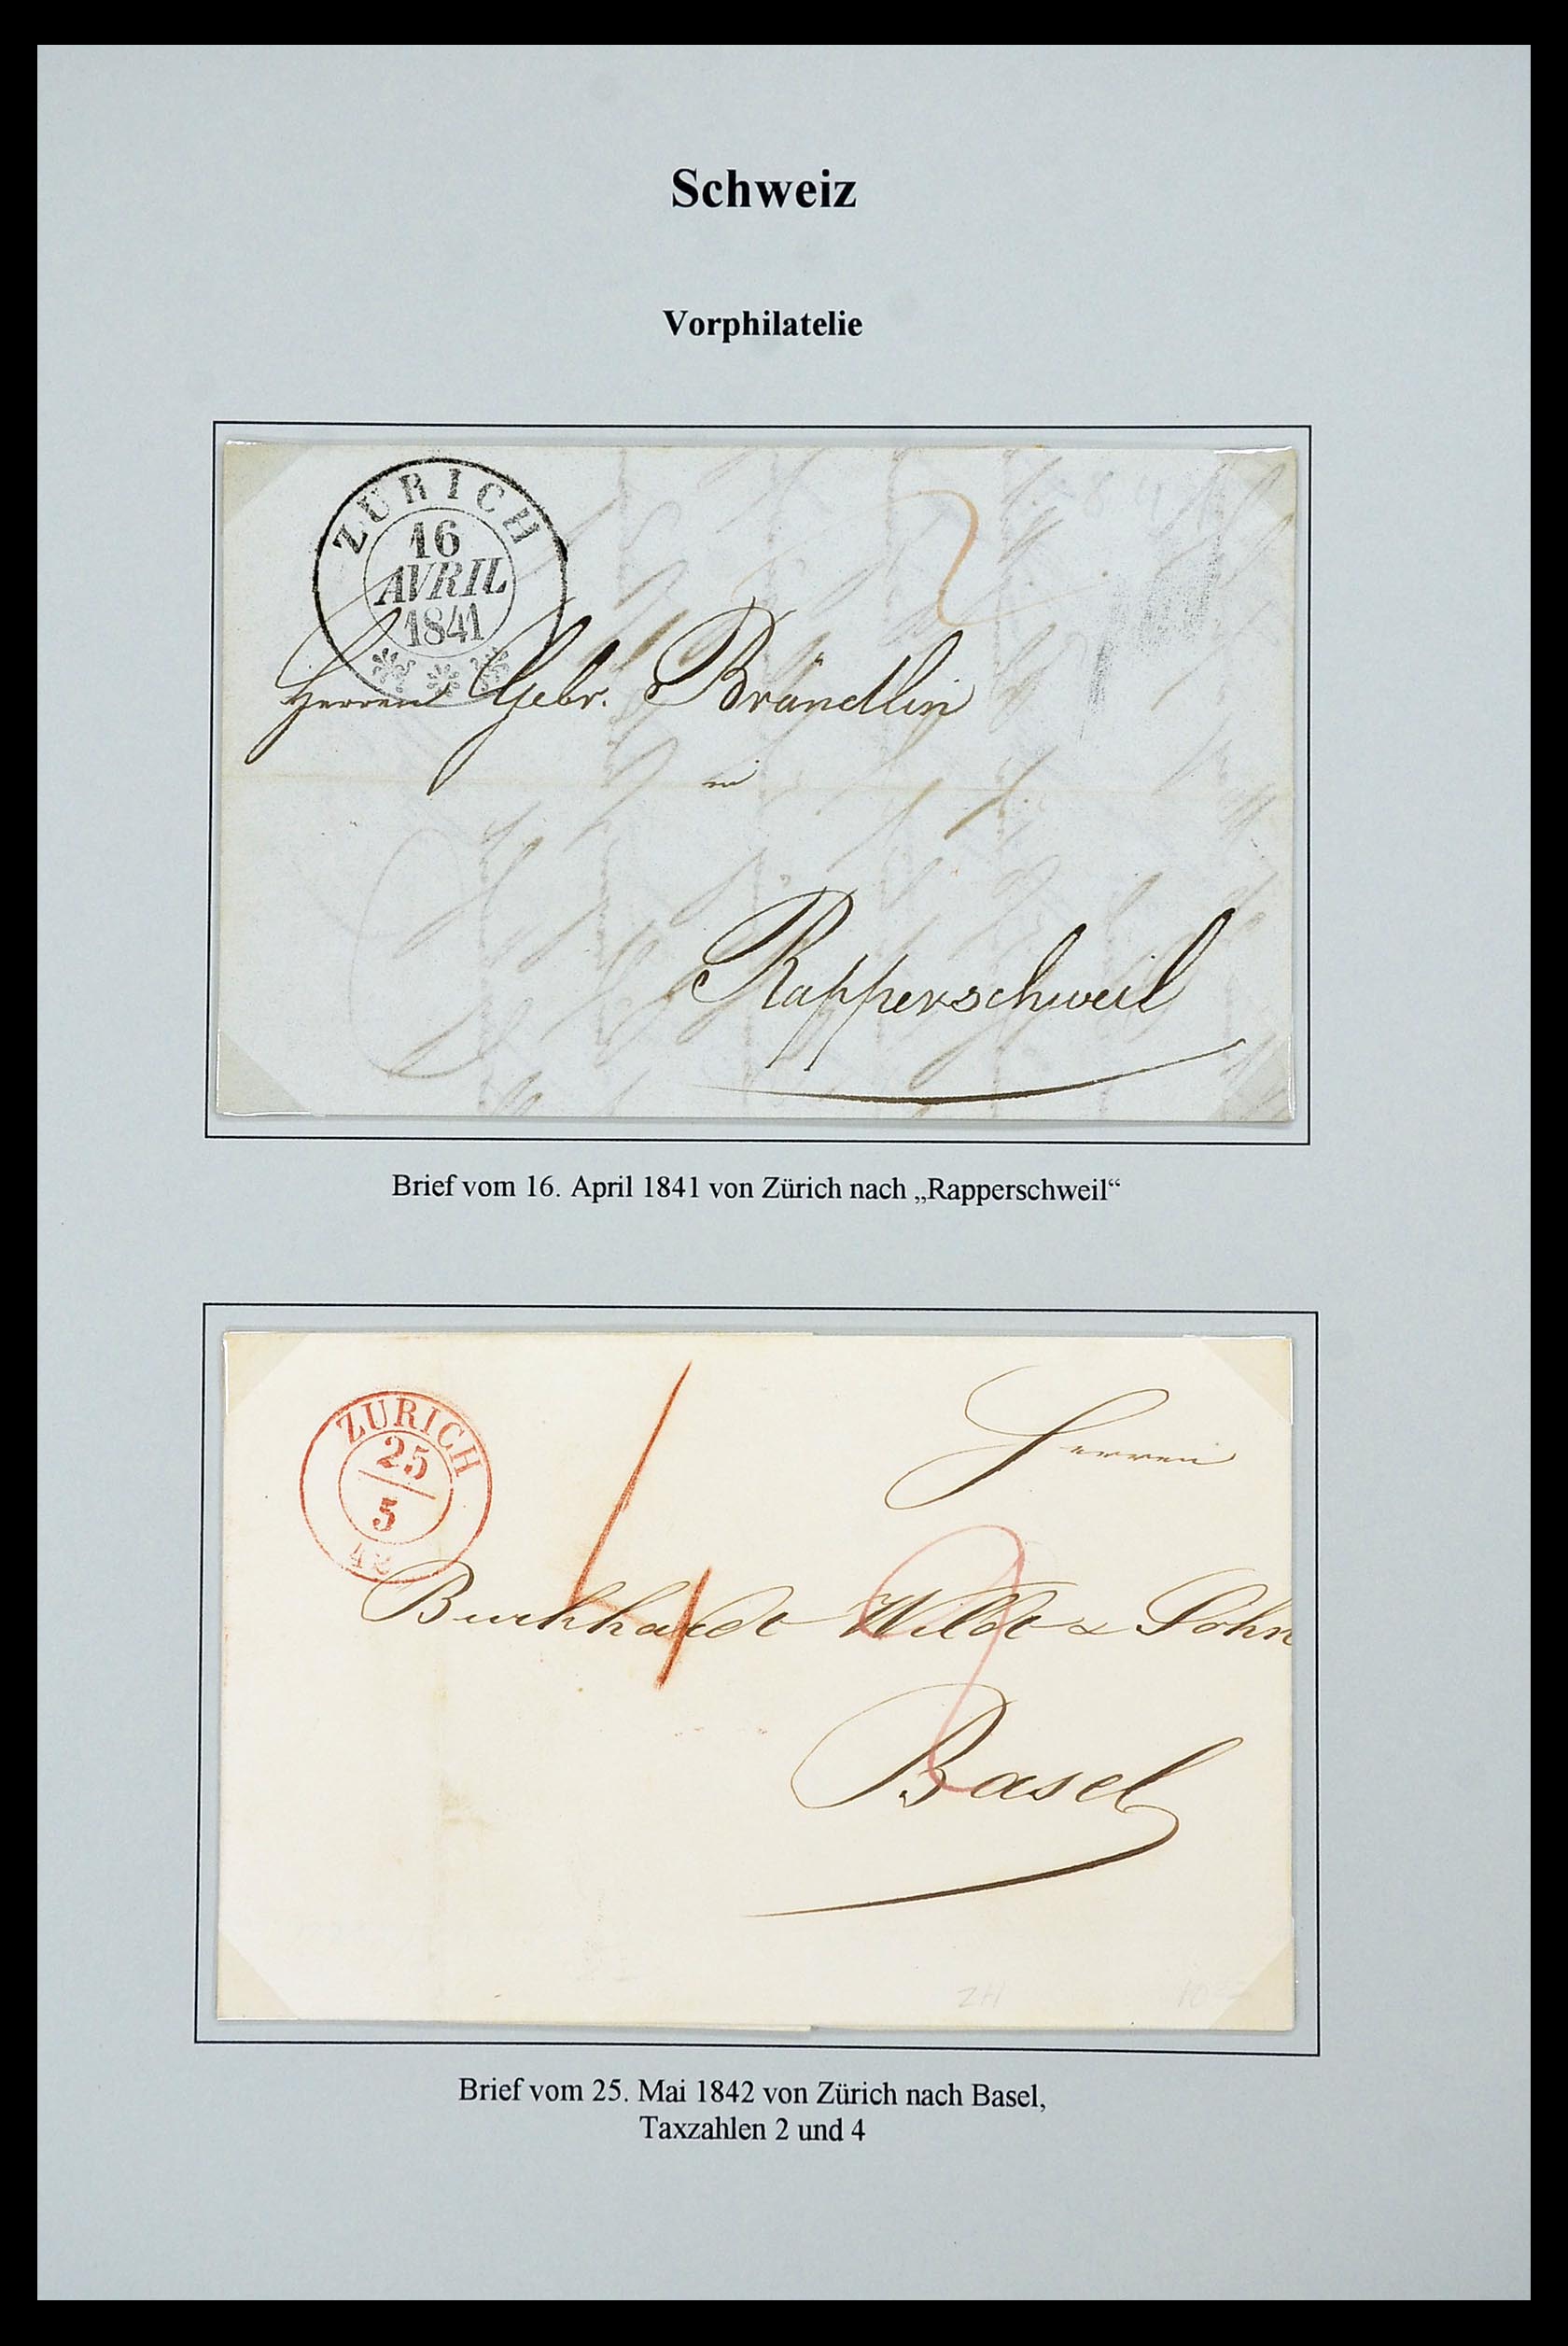 Schweiz
Vorphilatelie
ZURICH
16
AVRIL
1841
Herren Gebr. Brändlin
in
Rapperschweil
Brief vom 16. April 1841 von Zürich nach „Rapperschweil“
ZURICH
25
5
42
4
Herren
2
Burkhardt Wildt & Sohn
Basel
ZH
Brief vom 25. Mai 1842 von Zürich nach Basel,
Taxzahlen 2 und 4